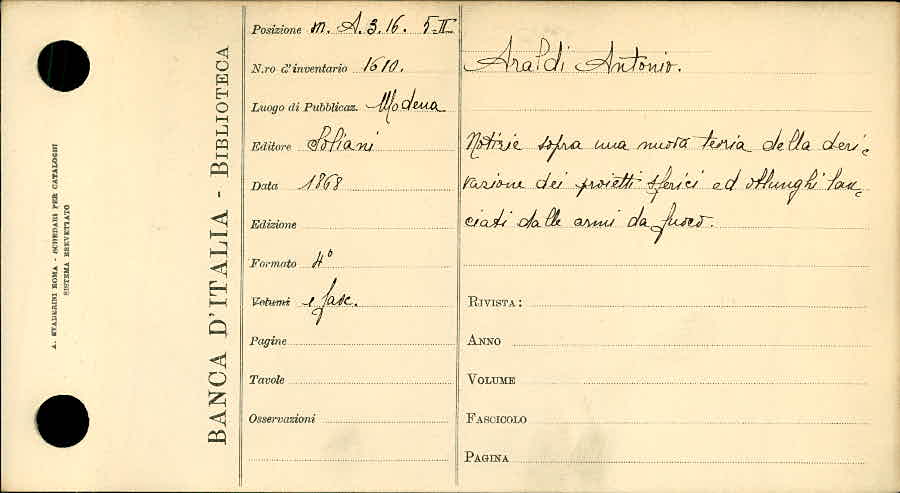 A. STADERINI ROMA - SCHEDARI PER CATALOGHI
SISTEMA BREVETTATO
BANCA D'ITALIA - BIBLIOTECA
Posizione m. A. 3. 16. 5-II
N.ro d'inventario 1610.
Luogo di Pubblicaz. Modena
Editore Soliani
Data 1868
Edizione
Formato 4º
Volumi 1 fasc.
Pagine
Tavole
Osservazioni
Araldi Antonio.
Notizie sopra una nuova teoria della deri-
vazione dei proietti sferici ed oblunghi lan-
ciati dalle armi da fuoco.
RIVISTA:
ANNO
VOLUME
FASCICOLO
PAGINA